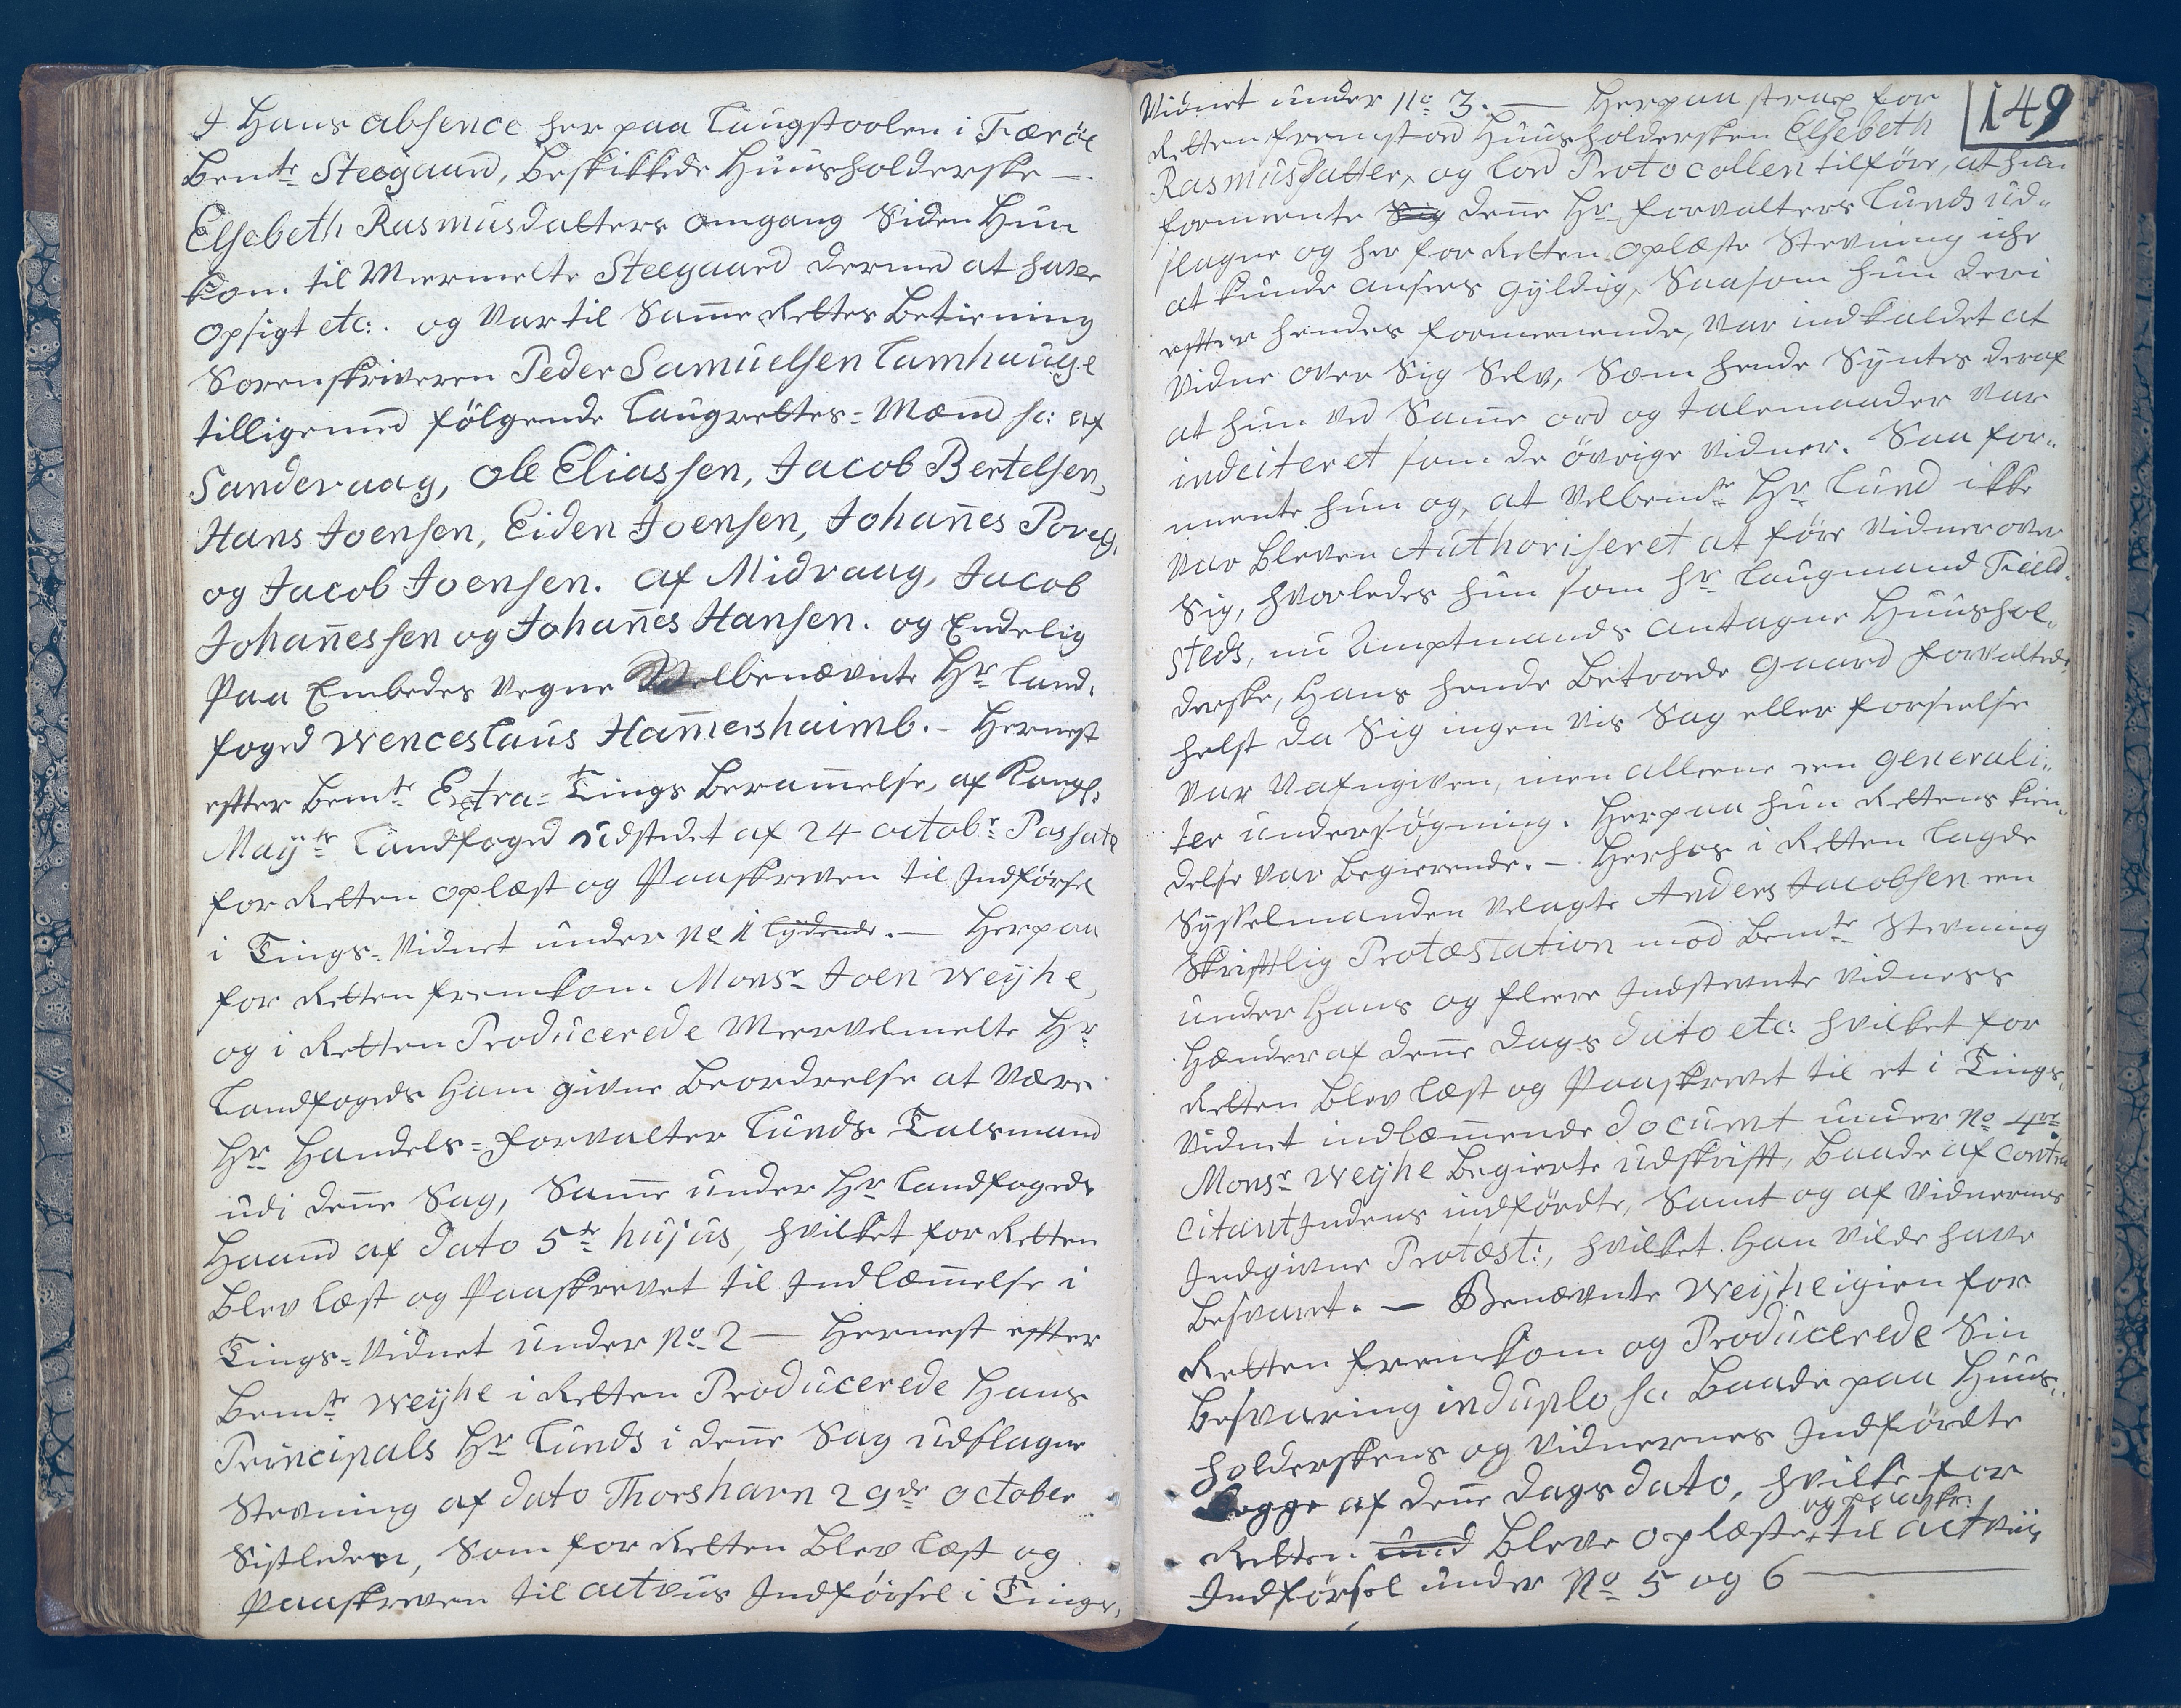 I Hans absence her paa Laugstoolen i Færöe
Bemte Steegaard, beskikkede Huusholderske —
Elsebeth Rasmusdatters omgang Siden Hun
kom til Meermelte Steegaard dermed at have
opsigt etc: og var til Samme Rettes betiening
Sorenskriveren Peder Samuelsen Lamhauge
tilligemed fölgende Laugrettes-Mænd sc: af
Sandevaag, Ole Eliassen, Jacob Bertelsen,
Hans Joensen, Eiden Joensen, Johan̄es Povels.
og Jacob Joensen. af Midvaag, Jacob
Johan̄essen og Johan̄es Hansen. og Endelig
paa Embedes vegne Velbenævnte Hr. Land-
foged Wenceslaus Ham̄ershaimb. – Hernest
efter bemte Extra-Tings beram̄else, af Kongl.
Mayts Landfoged udstedet af 24 octobr Passato
for Retten oplæst og paaskreven til Indförsel
i Tings-Vidnet under No 1 lydende. — Herpaa
for Retten fremkom Monsr Joen Weyhe,
og i Retten Producerede Meervelmelte Hr
Landfogeds Ham givne beordrelse at være
Hr Handels-Forvalter Lunds Talsmand
udi den̄e Sag, Sam̄e under Hr Landfogeds
Haand af dato 5te hujus, hvilket for Retten
blev læst og paaskrevet til Indlæm̄else i
Tings-Vidnet under No 2 — Hernest efter
bemte Weyhe i Retten Producerede Hans
Principals Hr Lunds i den̄e Sag udslagne
Stevning af dato Thorshavn 29de October
Sistleden, Som for Retten blev læst og
paaskreven til actviis Indförsel i Tings-
149
Vidnet under No 3. — Herpaa strax for
Retten fremstod Huusholdersken Elsebeth
Rasmusdatter, og lod Protocollen tilföre, at hun
formeente Sig den̄e Hr Forvalters Lunds ud-
slagne og her for Retten oplæste Stevning iche
at kunde ansees gyldig, Saasom hun deri
efter hendes formeenende, var indkaldet at
vidne over Sig Selv, Som hende Syntes deraf
at hun ved Sam̄e ord og talemaader var
indciteret som de övrige vidner. Saa for-
meente hun og, at velbemte Hr Lund ikke
var bleven Authoriseret at före vidner over
Sig, hvorledes hun som hr Laugmand Field-
steds, nu Amptmands antagne Huushol-
derske, Hans hende betroede Gaard forvaltede,
helst da Sig ingen vis Sag eller forseelse
var angiven, men alleene en generali-
ter undersögning. Herpaa hun Rettens kien-
delse var begierende. — Herhos i Retten lagde
Sysselmanden velagte Anders Jacobsen een
Skriftlig Protæstation mod bemte Stevning
under Hans og fleere Indstevnte vidners
Hænder af den̄e dags dato etc: hvilket for
Retten blev læst og paaskrevet til et i Tings-
Vidnet indlæm̄ende documt under No 4re
Monsr Weyhe begierte udskrift, baade af contra
citantindens indfördte, Samt og af vidnernes
Indgivne Protæst:, hvilket han vilde have
besvaret. — Benævnte Weyhe igien for
Retten fremkom og Producerede Sin
besvaring induplo sc: baade paa Huus-
holderskens og vidnernes Indfördte
begge af den̄e dags dato, hvilke for
Retten und bleve oplæste og paaskr: til actviis
Indförsel under No 5 og 6 —